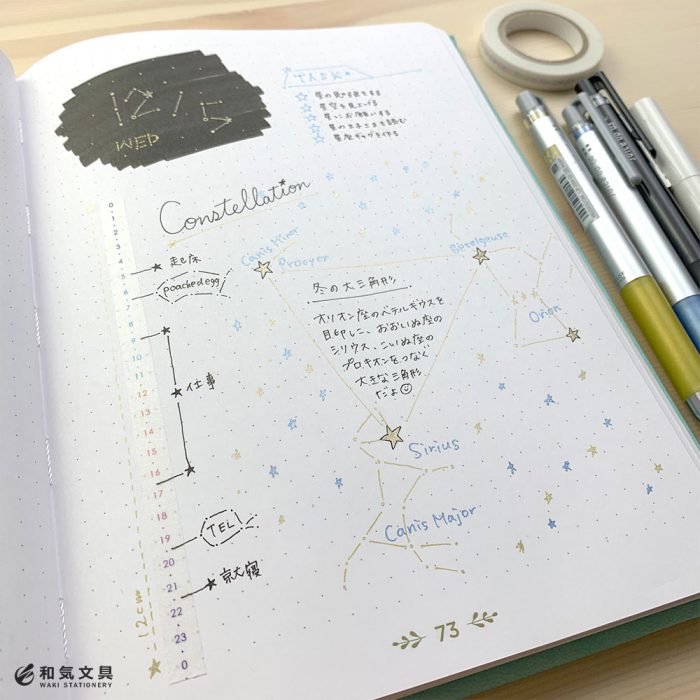 12/5
WED
TASK
星空を見上げる
星にお願いする
星の王子さまを読む
Constellation
0
1
2
3
4
5
6
7
8
9
10
11
12
13
14
15
16
17
18
19
20
21
22
23
0
起床
poached egg
仕事
TEL
就寝
12cm
Canis Minor
Procyon
Betelgeuse
Orion
冬の大三角形
オリオン座のベテルギウスを
目印に、おおいぬ座の
シリウス、こいぬ座の
プロキオンをつなぐ
大きな三角形
だよ
Sirius
Canis Major
73
和気文具
WAKI STATIONERY